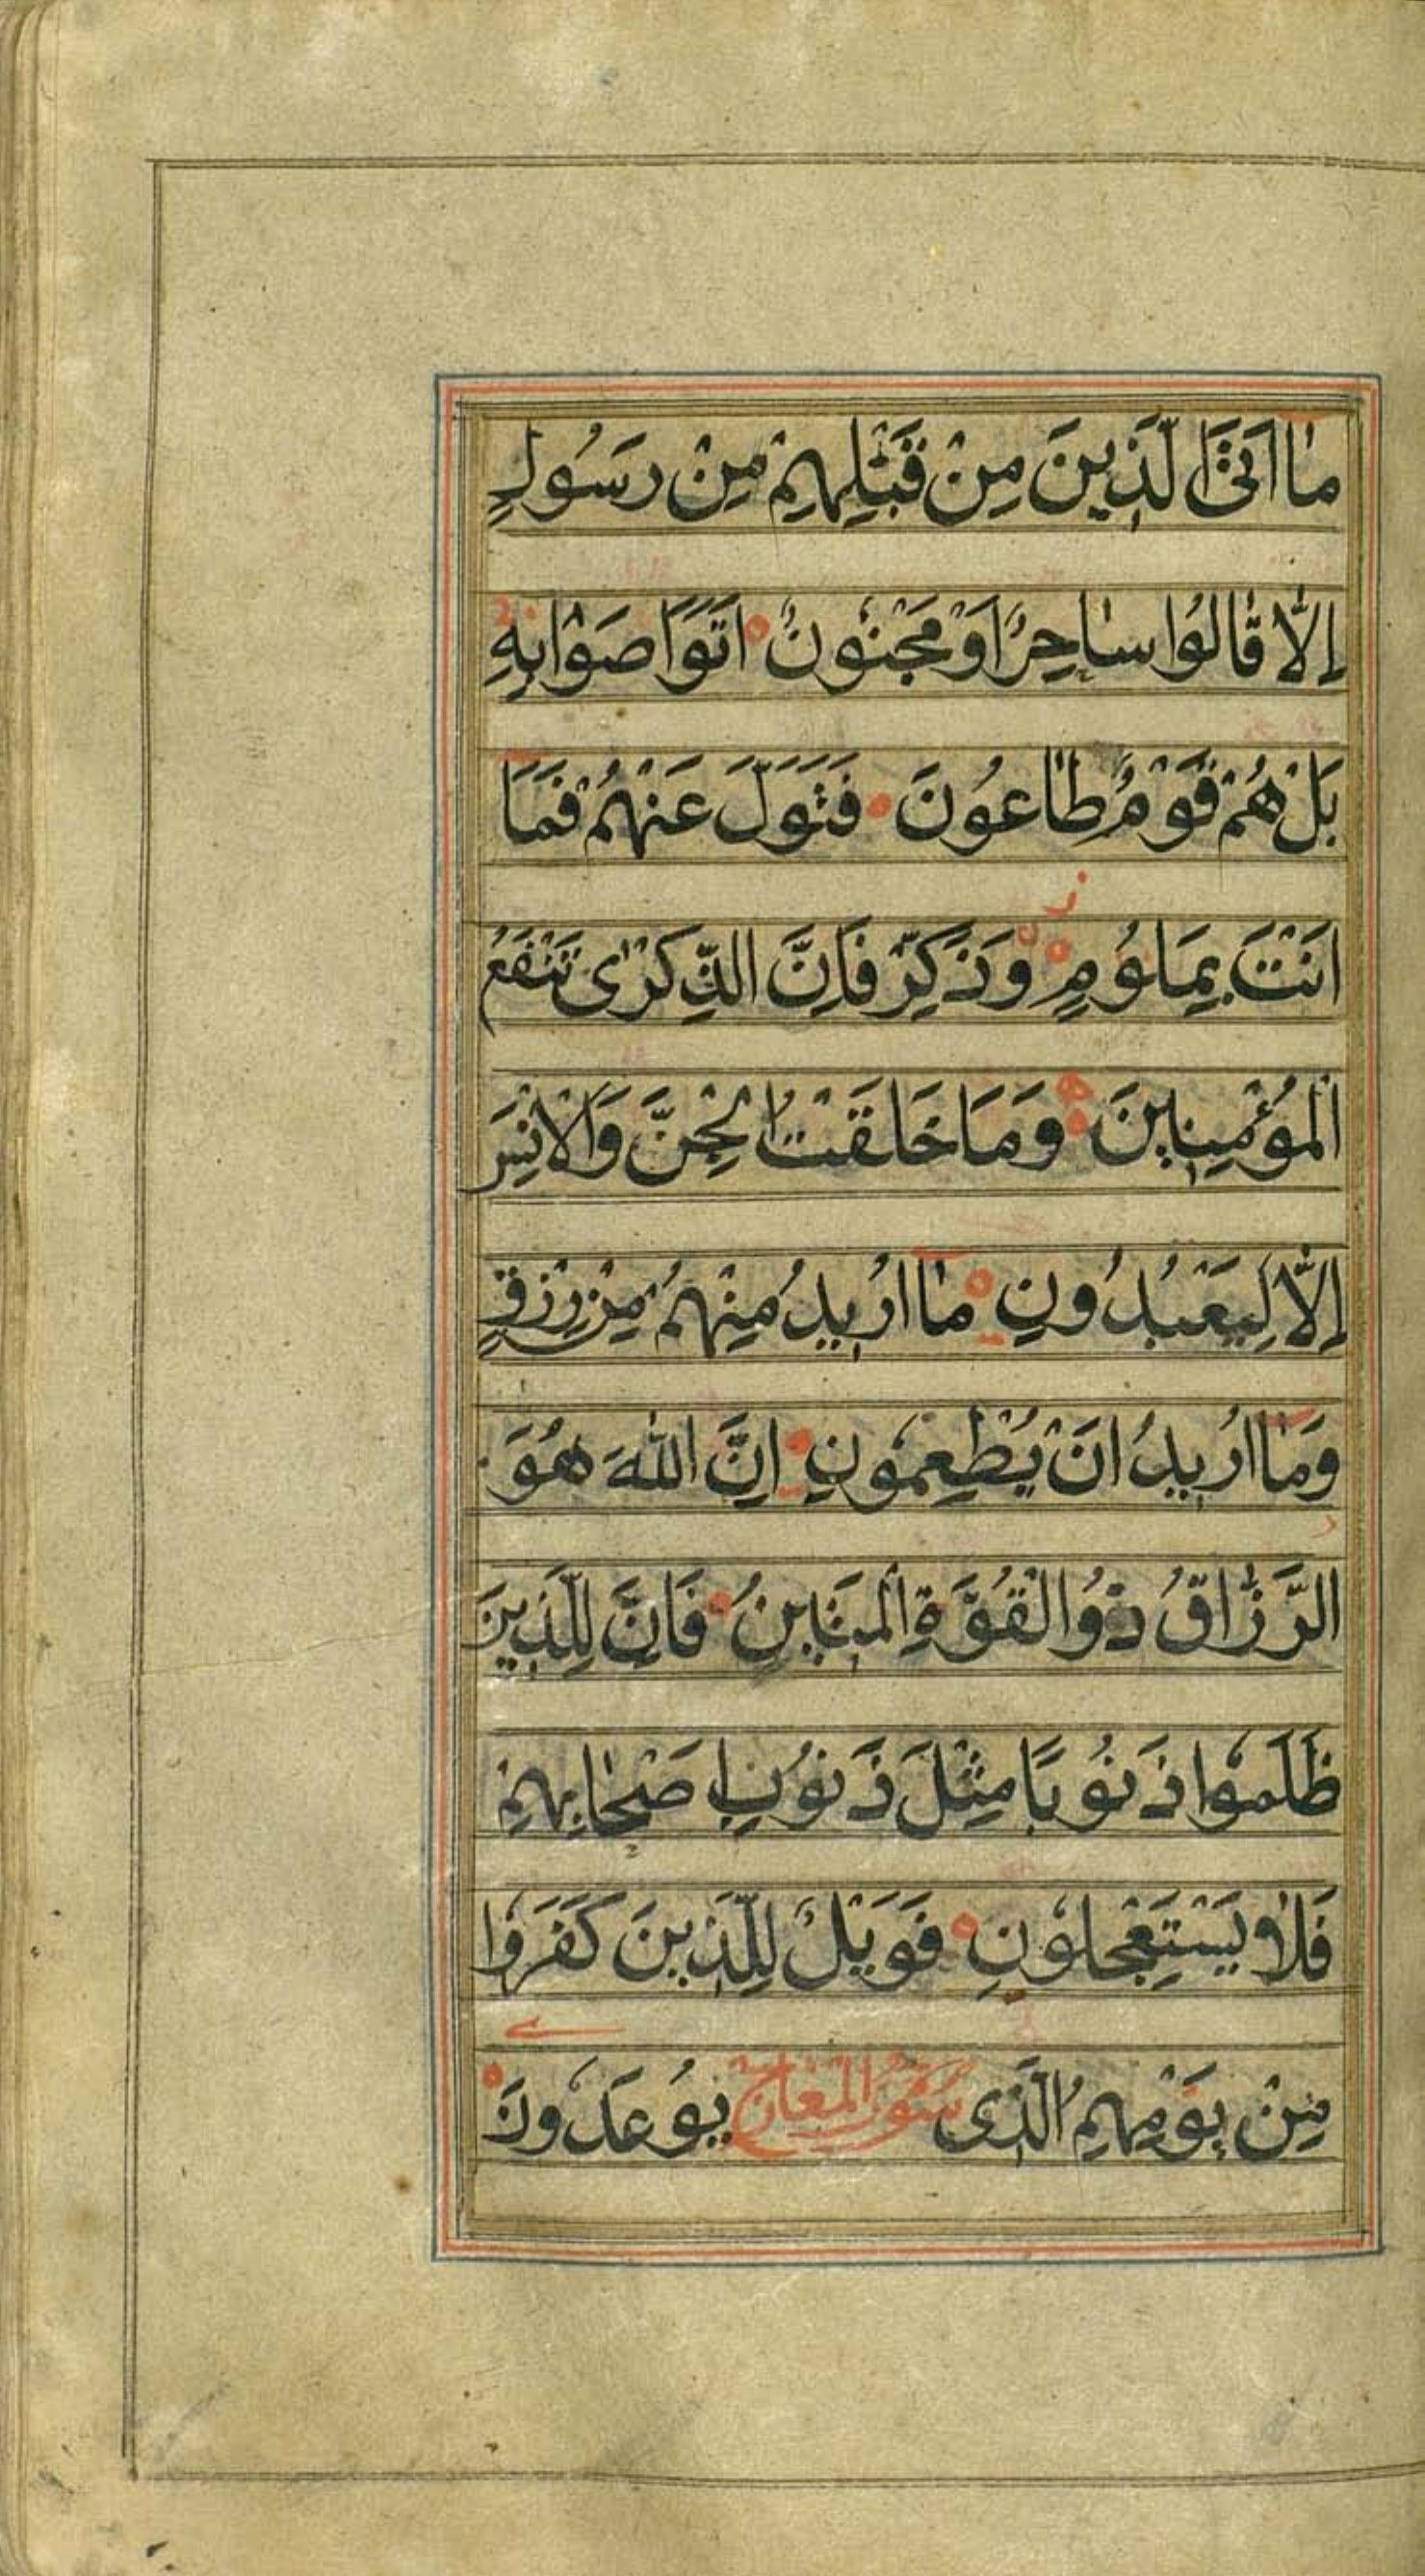 مَا اَتَى الَّذِينَ مِنْ قَبْلِهِمْ مِنْ رَسُولٍ
اِلَّا قَالُوا سَاحِرٌ اَوْ مَجْنُونٌ اَتَوَاصَوْا بِهِ
بَلْ هُمْ قَوْمٌ طَاغُونَ فَتَوَلَّ عَنْهُمْ فَمَا
اَنْتَ بِمَلُومٍ وَذَكِّرْ فَاِنَّ الذِّكْرٰى تَنْفَعُ
الْمُؤْمِنِينَ وَمَا خَلَقْتُ الْجِنَّ وَالْاِنْسَ
اِلَّا لِيَعْبُدُونِ مَا اُرِيدُ مِنْهُمْ مِنْ رِزْقٍ
وَمَا اُرِيدُ اَنْ يُطْعِمُونِ اِنَّ اللّٰهَ هُوَ
الرَّزَّاقُ ذُو الْقُوَّةِ الْمَتِينُ فَاِنَّ لِلَّذِينَ
ظَلَمُوا ذَنُوبًا مِثْلَ ذَنُوبِ اَصْحَابِهِمْ
فَلَا يَسْتَعْجِلُونِ فَوَيْلٌ لِلَّذِينَ كَفَرُوا
مِنْ يَوْمِهِمُ الَّذِى يُوعَدُونَ